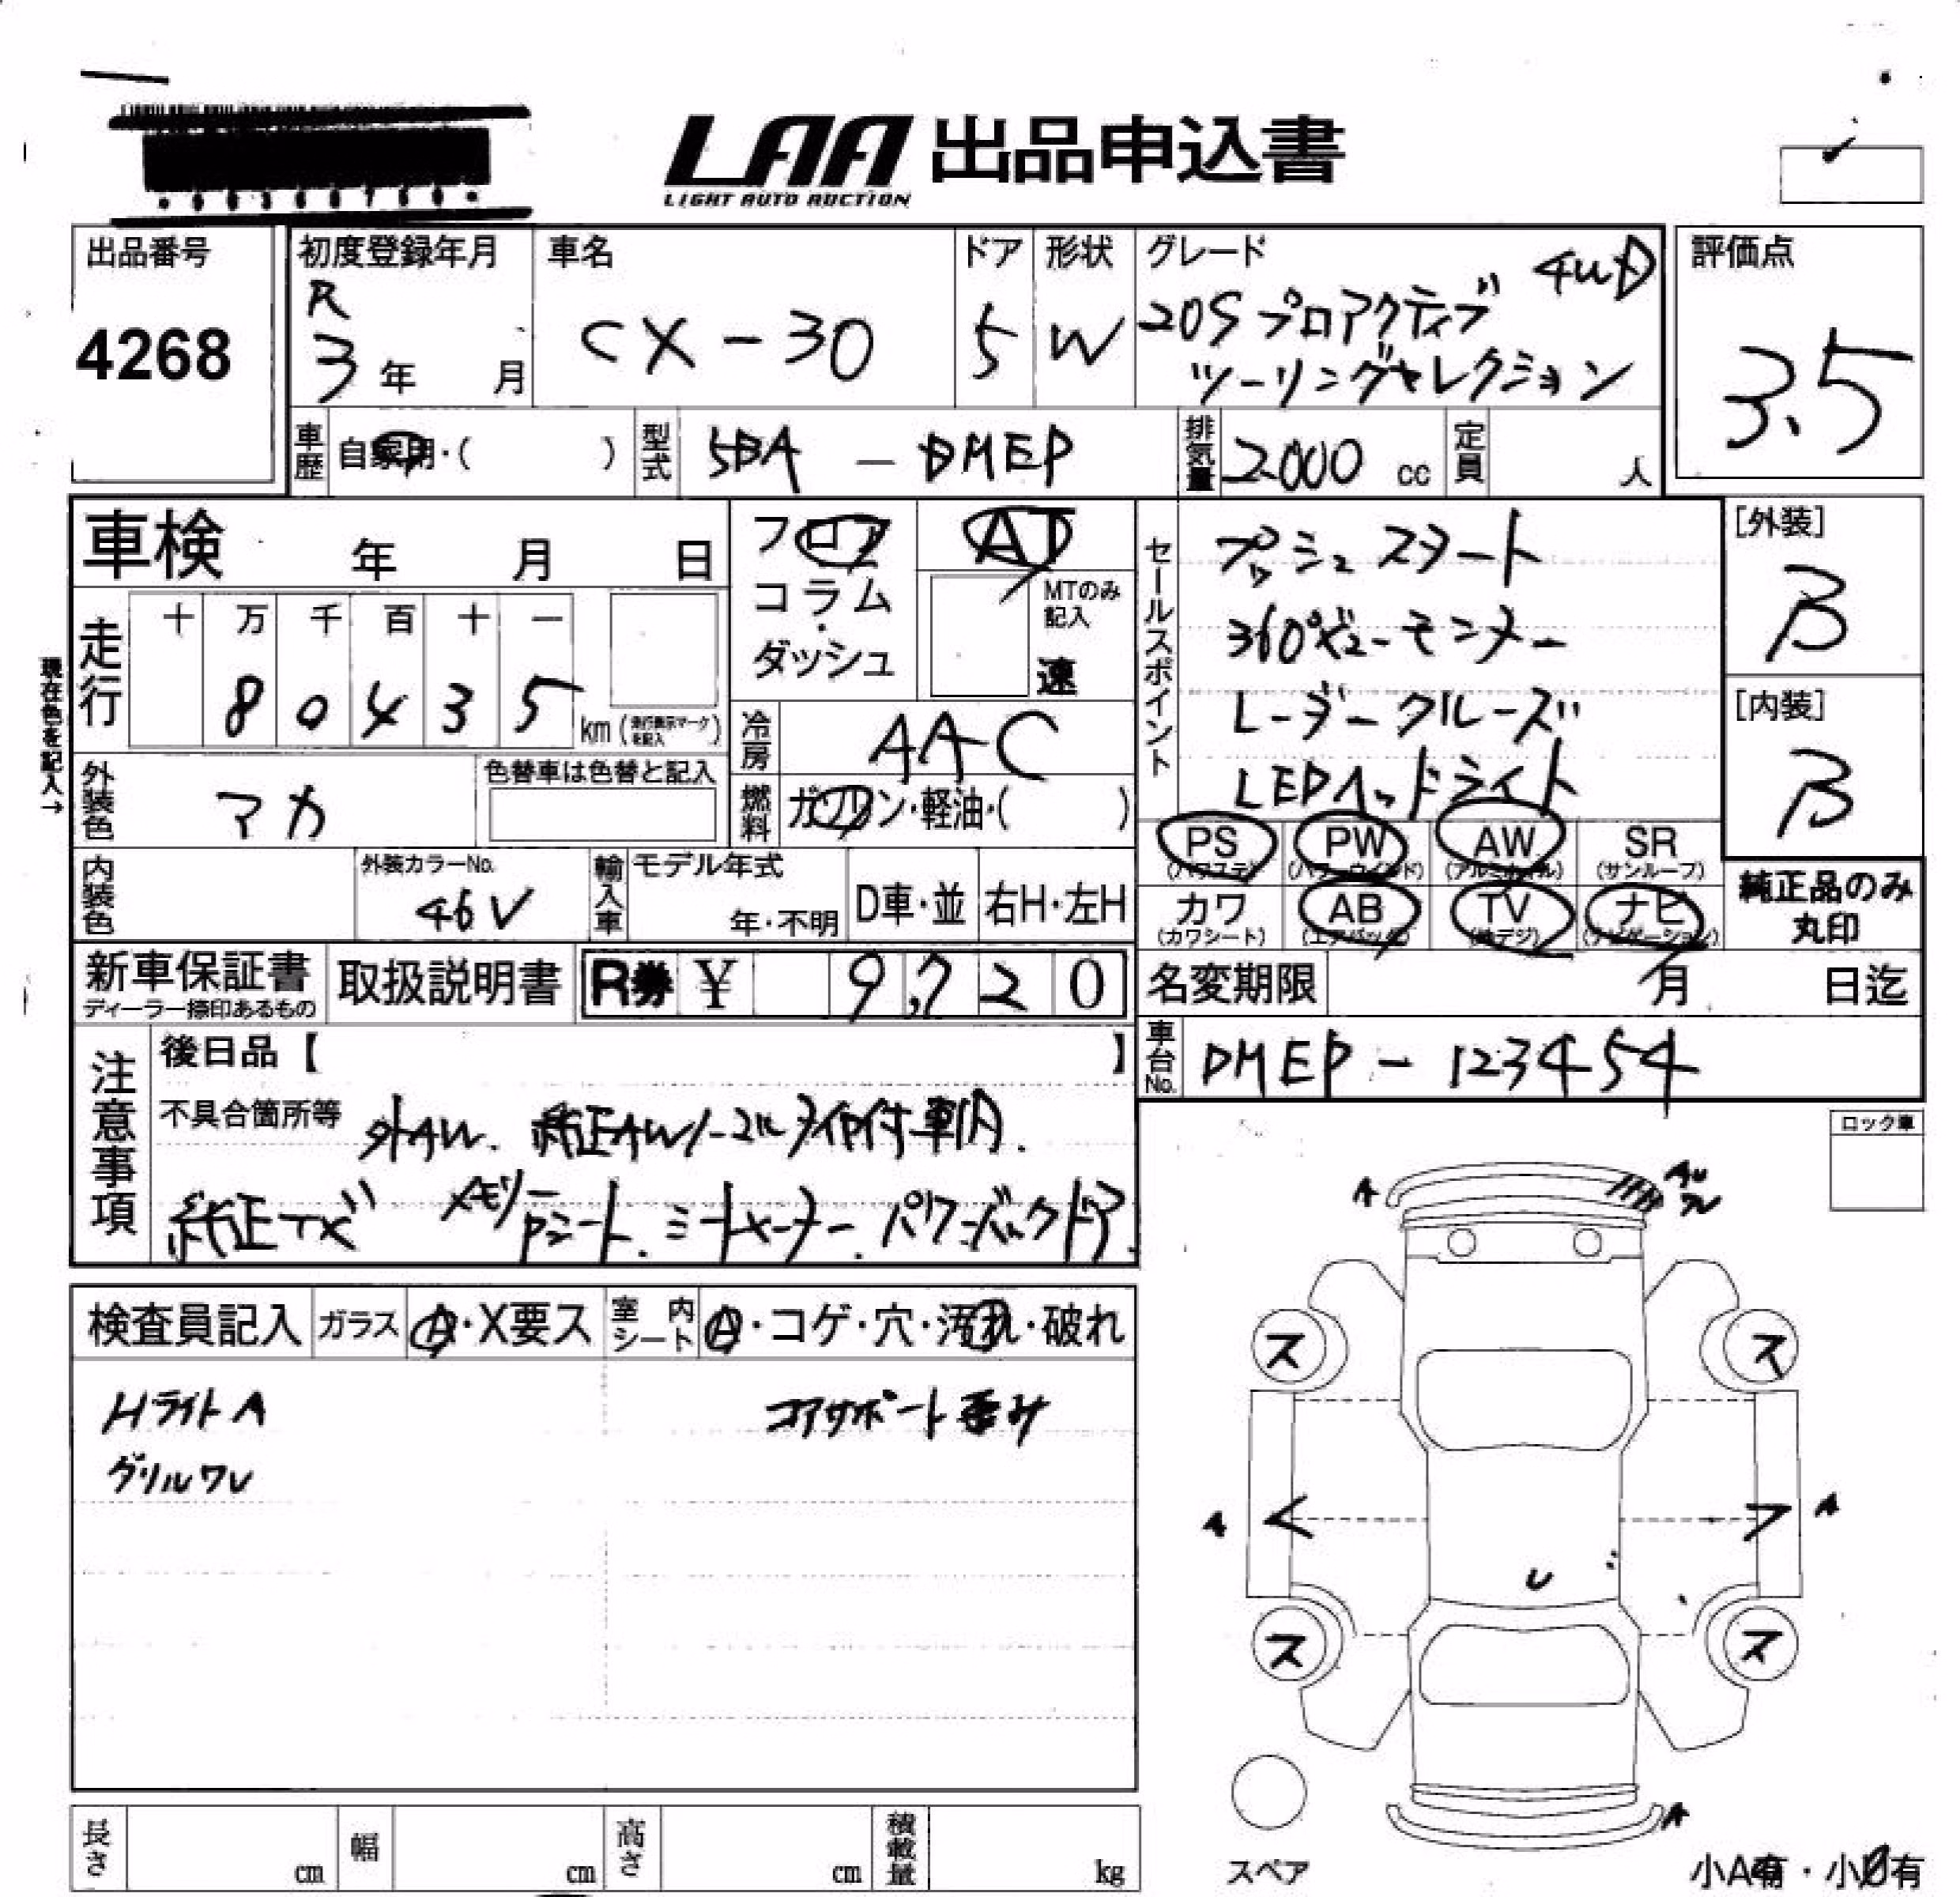 LAA 出品申込書
LIGHT AUTO AUCTION
出品番号
4268
初度登録年月
R
3年 月
車名
CX-30
ドア
5
形状
W
グレード
4WD
20S プロアクティブ
ツーリングセレクション
評価点
3.5
車歴
自家用・( )
型式
5BA - DMEP
排気量
2000 cc
定員
人
車検 年 月 日
フロア
コラム
・
ダッシュ
AT
MTのみ
記入
速
セールスポイント
プッシュスタート
360°ビューモニター
レーダークルーズ
LEDヘッドライト
[外装]
B
[内装]
B
現在色を記入→
走行
十 万 千 百 十 一
8 0 4 3 5
km (走行表示マークを記入)
冷房
AAC
外装色
マカ
色替車は色替と記入
燃料
ガソリン・軽油・( )
PS
(パワステ)
PW
(パワーウインド)
AW
(アルミホイル)
SR
(サンルーフ)
内装色
外装カラーNo.
46V
輸入車
モデル年式
年・不明
D車・並
右H・左H
カワ
(カワシート)
AB
(エアバック)
TV
(地デジ)
ナビ
(ナビゲーション)
純正品のみ
丸印
新車保証書
ディーラー捺印あるもの
取扱説明書
R券 ¥ 9,720
名変期限 月 日迄
車台No.
DMEP - 123454
注意事項
後日品【 】
不具合箇所等
外AW. 純正AWノーマルタイヤ付車内.
純正TV メモリーPシート. シートヒーター. パワーバックドア.
ロック車
A
A
検査員記入
ガラス
A・X要ス
室内シート
A・コゲ・穴・汚れ・破れ
HライトA
コアサポート歪み
グリルワレ
ス
ス
A
A
U
ス
ス
A
スペア
長さ
cm
幅
cm
高さ
cm
積載量
kg
小A有・小U有